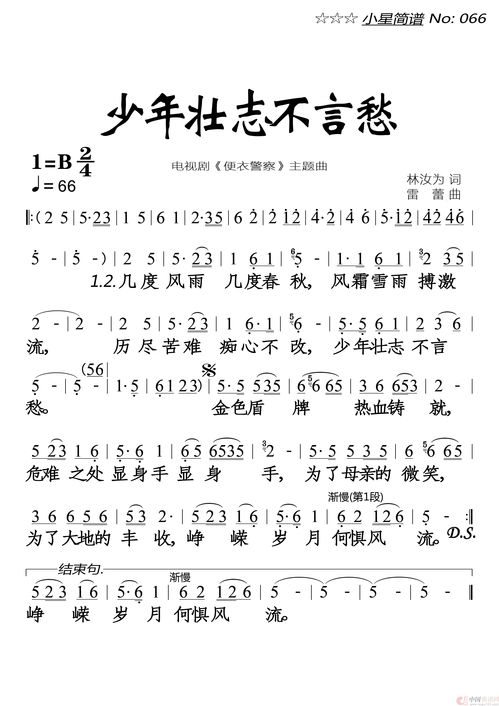 ☆☆☆ 小星简谱 No: 066
少年壮志不言愁
1=B 2/4
♩= 66
电视剧《便衣警察》主题曲
林汝为 词
雷 蕾 曲
‖:(2 5 | 5·23 | 1 5 | 6·156 | 1 5 | 2·35 | 6 2 | 2 12 | 4·24 | 1·24 | 5·424 | 4246 |
5 - | 5 - ) | 2 5 | 5· 23 | 1 61 | 5 - | 1· 1 | 61 65 | 2 3 |
1.2.几度 风雨 几度春 秋, 风霜雪雨 搏激
2 - | 2 - | 2 5 | 5· 23 | 1 6· | 1 - | 5· 5 61 | 2 3 6 |
流, 历 尽苦难 痴心不 改, 少年壮志 不言
5 - | 5 - (56 | 1·5 | 6123) | 5· 5 535 | 56665 | 3 6 653 | 2 - |
愁。 金色盾 牌 热血铸 就,
5 23 1 6 | 5· 6 1 | 65 6535 | 2 - | 5· 5 5 3 5 | 6 1 6 5 |
危难 之处 显身手 显 身 手, 为了母亲的 微笑,
渐慢(第1段)
3 6 6 5 6 | 523 2· | 5223 16 | 5·6 1 | 62 126 | 5 - :‖
为了大地的 丰 收, 峥 嵘 岁 月 何惧风 流。 D.S.
结束句.
渐慢
5223 16 | 5·6 1 | 62 126 | 5 - | 5 - | 5 - | 5 - ‖
峥 嵘 岁 月 何惧风 流。